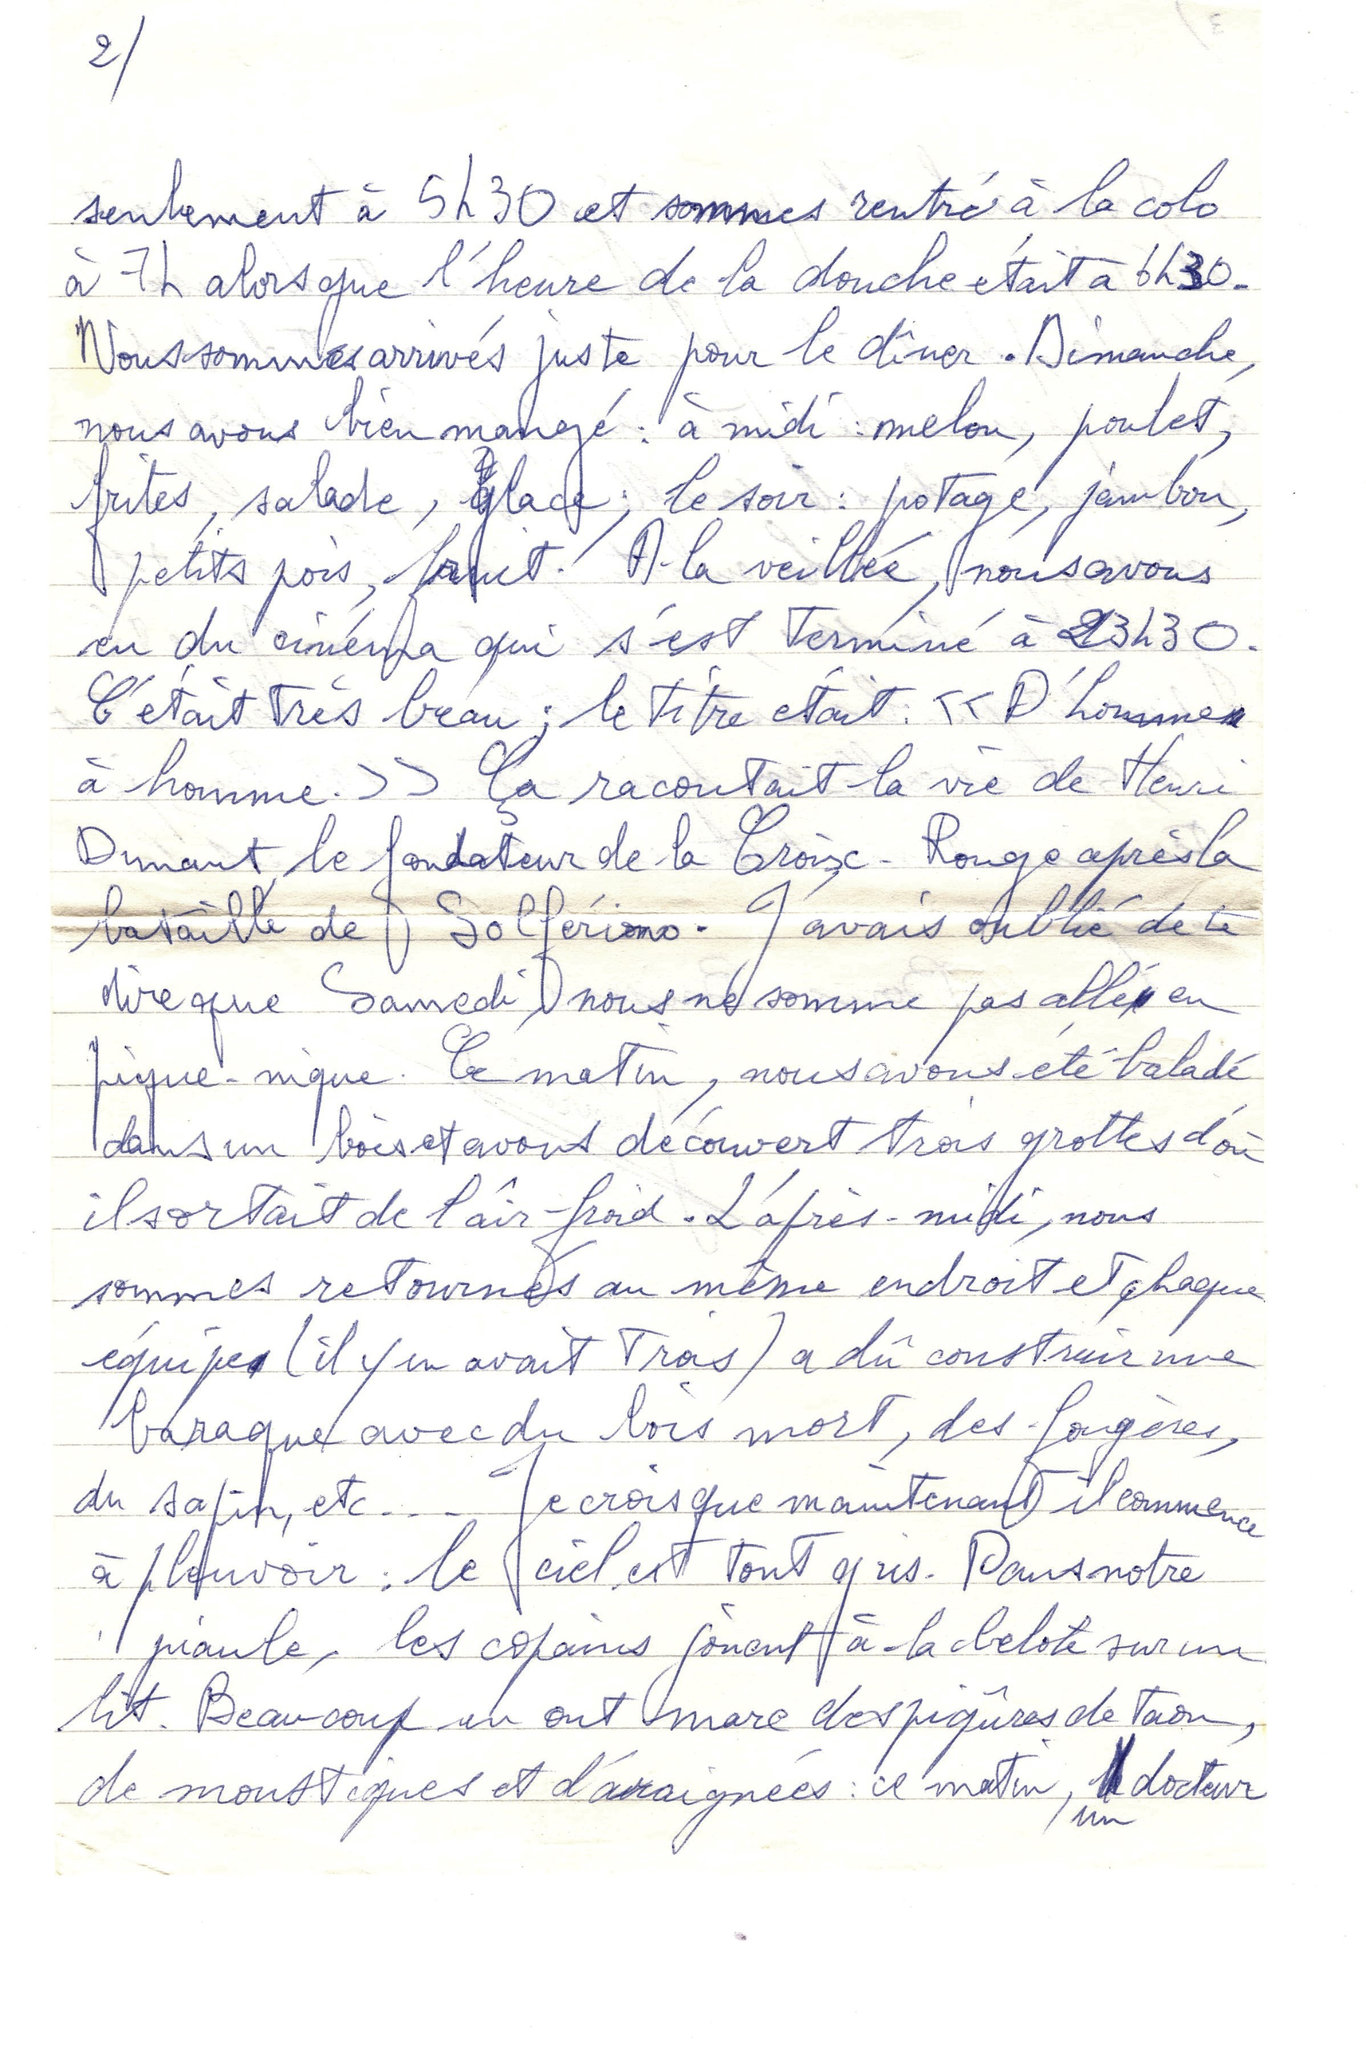 2/
seulement à 5h30 et sommes rentré à la colo
à 7h alors que l'heure de la douche était à 6h30.
Nous sommes arrivés juste pour le dîner. Dimanche,
nous avons bien mangé : à midi : melon, poulet,
frites, salade, glace ; le soir : potage, jambon,
petits pois, fruit. A la veillée, nous avons
eu du cinéma qui s'est terminé à 23h30.
C'était très beau ; le titre était : << D'homme
à homme. >> Ça racontait la vie de Henri
Dunant, le fondateur de la Croix-Rouge après la
bataille de Solférino. J'avais oublié de te
dire que Samedi, nous ne somme pas allé en
pique-nique. Ce matin, nous avons été baladé
dans un bois et avons découvert trois grottes d'où
il sortait de l'air froid. L'après-midi, nous
sommes retournés au même endroit et chaque
équipe (il y en avait trois) a dû construir une
baraque avec du bois mort, des fougères,
du sapin, etc.... Je crois que maintenant il commence
à pleuvoir : le ciel est tout gris. Dans notre
piaule, les copains jouent à la belote sur un
lit. Beaucoup en ont mare des piqûres de taon,
de moustiques et d'araignées : ce matin, un docteur